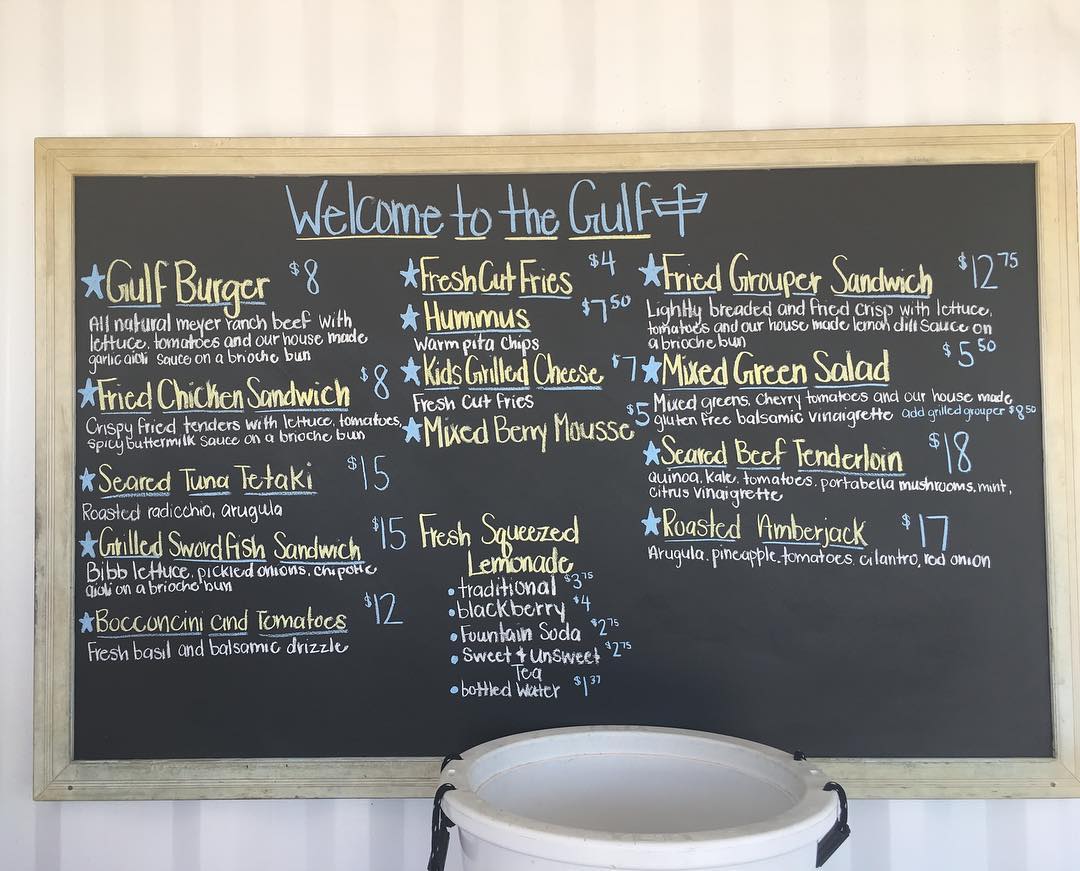 Welcome to the Gulf
Gulf Burger $8
All natural meyer ranch beef with
lettuce, tomatoes and our house made
garlic aioli sauce on a brioche bun
Fried Chicken Sandwich $8
Crispy fried tenders with lettuce, tomatoes,
spicy buttermilk sauce on a brioche bun
Seared Tuna Tetaki $15
Roasted radicchio, arugula
Grilled Swordfish Sandwich $15
Bibb lettuce, pickled onions, chipotle
aioli on a brioche bun
Bocconcini and Tomatoes $12
Fresh basil and balsamic drizzle
Fresh Cut Fries $4
Hummus $7.50
Warm pita chips
Kids Grilled Cheese $7
Fresh cut fries
Mixed Berry Mousse $5
Fresh Squeezed
Lemonade
• traditional $3.75
• blackberry $4
• Fountain Soda $2.75
• Sweet & Unsweet $2.75
Tea
• bottled water $1.37
Fried Grouper Sandwich $12.75
Lightly breaded and fried crisp with lettuce,
tomatoes and our house made lemon dill sauce on
a brioche bun
Mixed Green Salad $5.50
Mixed greens, cherry tomatoes and our house made
gluten free balsamic vinaigrette add grilled grouper $8.50
Seared Beef Tenderloin $18
quinoa, kale, tomatoes, portabella mushrooms, mint,
citrus vinaigrette
Roasted Amberjack $17
Arugula, pineapple, tomatoes, cilantro, red onion